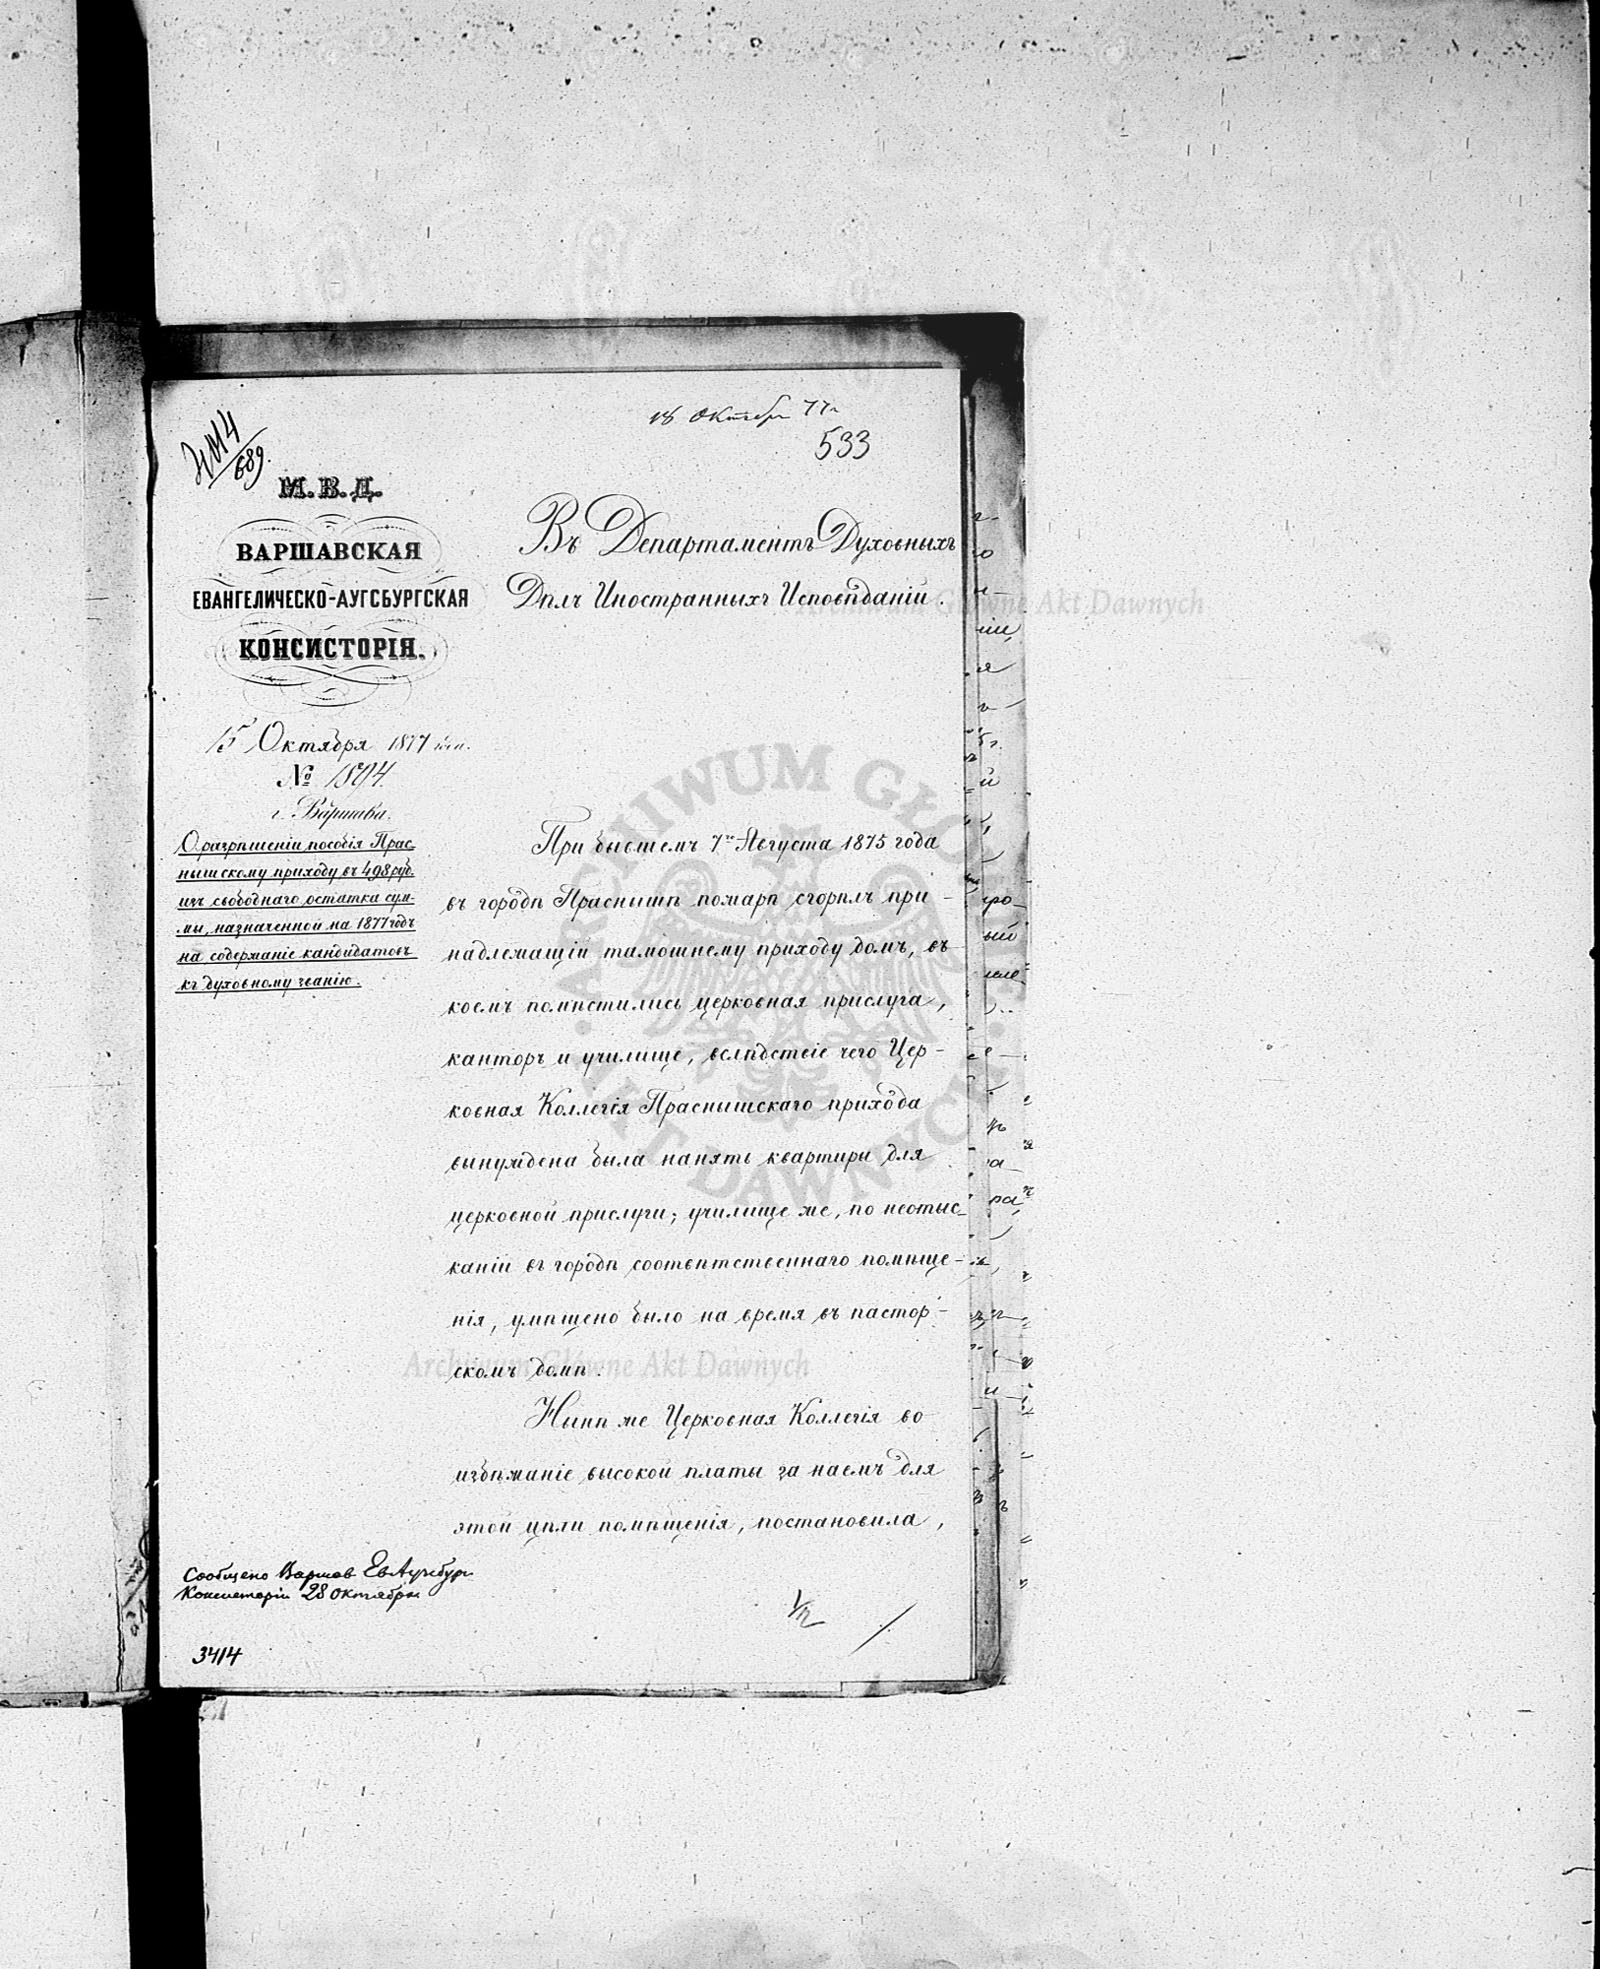 18 Октябр 77г
533
689.
М.В.Д.
ВАРШАВСКАЯ
ЕВАНГЕЛИЧЕСКО-АУГСБУРГСКАЯ
КОНСИСТОРІЯ.
15 Октября 1877
№ 1894.
г. Варшава.
О разрѣшеніи пособія Прас-
нышскому приходу въ 498 руб.
изъ свободнаго остатка сум-
мы, назначенной на 1877 годъ
на содержаніе кандидатовъ
къ духовному званію.
Въ Департаментъ Духовныхъ
Дѣлъ Иностранныхъ Исповѣданій.
При бывшемъ 7го Августа 1875 года
въ городѣ Праснышѣ пожарѣ сгорѣлъ при-
надлежащій тамошнему приходу домъ, въ
коемъ помѣстились церковная прислуга,
канторъ и училище, вслѣдствіе чего Цер-
ковная Коллегія Праснышскаго прихода
вынуждена была нанять квартиры для
церковной прислуги; училище же, по неотыс-
каніи въ городѣ соотвѣтственнаго помѣще-
нія, умѣщено было на время въ пастор-
скомъ домѣ.
Нынѣ же Церковная Коллегія во
избѣжаніе высокой платы за наемъ для
этой цѣли помѣщенія, постановила,
Сообщено Варшав Ев Аугсбург
Консисторіи 28 октября
3414
Archiwum Główne Akt Dawnych
ARCHIWUM GŁÓWNE AKT DAWNYCH
Archiwum Główne Akt Dawnych